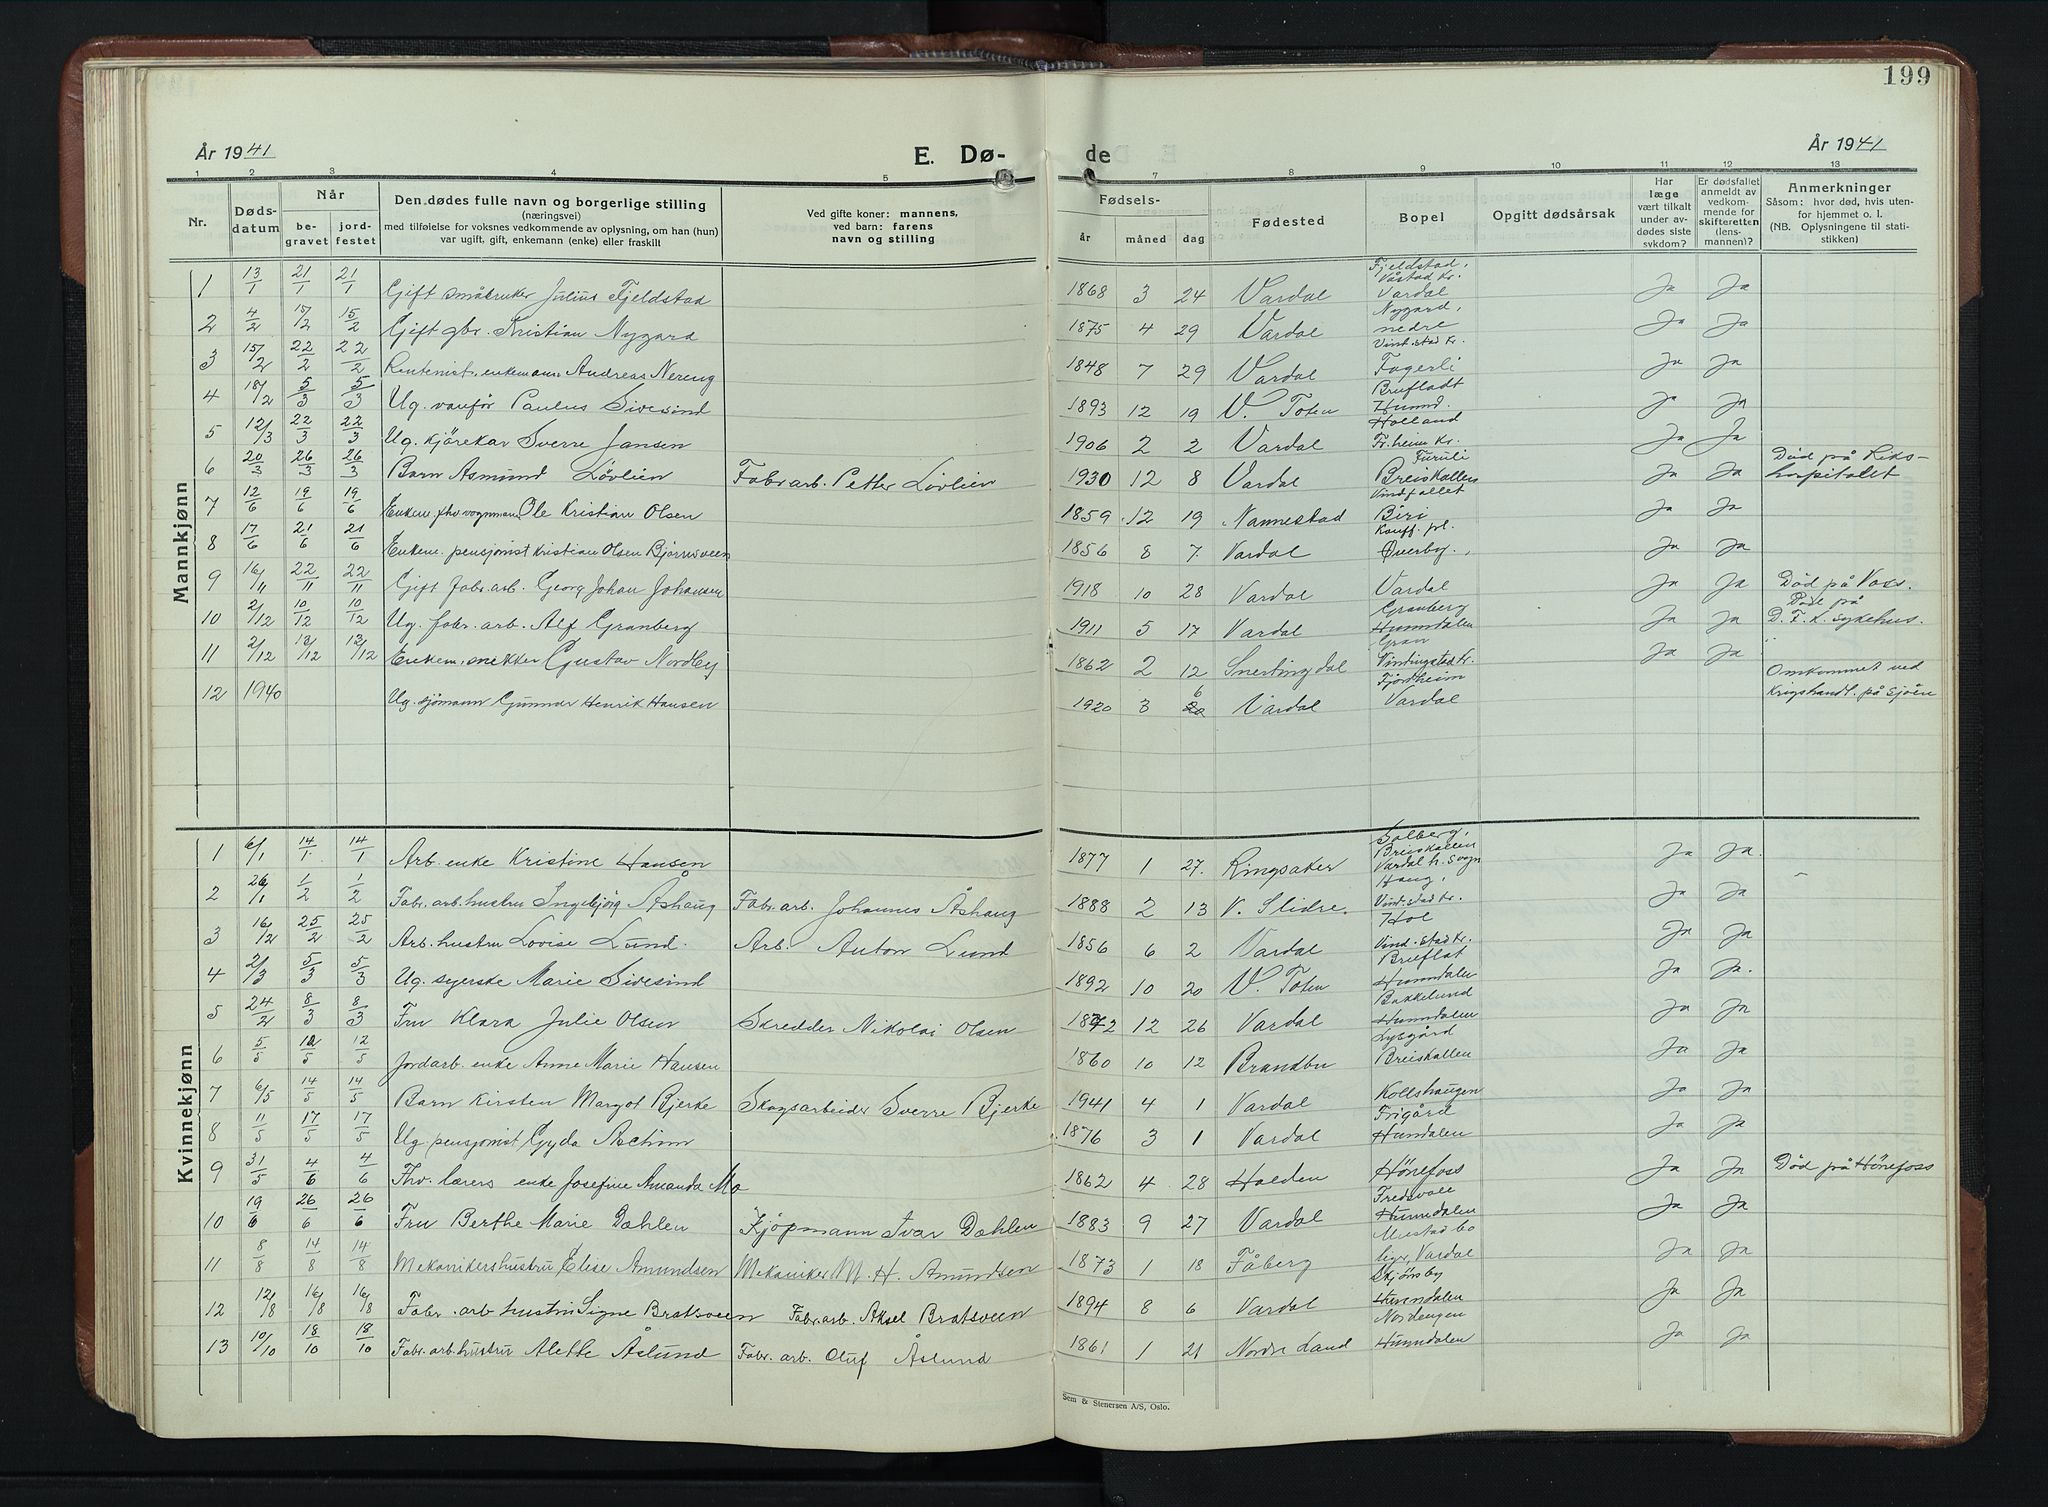 199
År 1941 E. Dø- de År 1941
1 2 3 4 5 7 8 9 10 11 12 13
Nr. Døds-datum Når be-gravet jord-festet
Den dødes fulle navn og borgerlige stilling
(næringsvei)
med tilføielse for voksnes vedkommende av oplysning, om han (hun)
var ugift, gift, enkemann (enke) eller fraskilt
Ved gifte koner: mannens,
ved barn: farens
navn og stilling
Fødsels-
år måned dag
Fødested
Bopel
Opgitt dødsårsak
Har læge vært tilkalt under av-dødes siste sykdom?
Er dødsfallet anmeldt av vedkom-mende for skifteretten (lens-mannen)?
Anmerkninger
Såsom: hvor død, hvis uten-
for hjemmet o. l.
(NB. Oplysningene til stati-
stikken)
Mannkjønn
1 13/1 21/1 21/1 Gift småbruker Julius Fjeldstad 1868 3 24 Vardal Fjeldstad, Vardal Ja Ja
2 4/2 15/2 15/2 Gift gbr. Kristian Nygard 1875 4 29 Vardal Nygard, nedre Vind.stad kr. Ja Ja
3 15/2 22/2 22/2 Rentenist, enkemann Andreas Nereng 1848 7 29 Vardal Fagerli Ja Ja
4 18/2 5/3 5/3 Ug. vanfør Paulus Sivesind 1893 12 19 V. Toten Brufladt Hunnd. Ja Ja
5 12/3 22/3 22/3 Ug. kjørekar Sverre Jansen 1906 2 2 Vardal Holland Fr.heim kr. Ja Ja
6 20/3 26/3 26/3 Barn Asmund Lövlien Fabr.arb. Petter Lövlien 1930 12 8 Vardal Furuli Breiskallen Ja Ja Död på Riks-hospitalet
7 12/6 19/6 19/6 Enkem. fhv. vognmann Ole Kristian Olsen 1859 12 19 Nannestad Vindfallet Biri Ja Ja
8 17/6 21/6 21/6 Enkem. pensjonist Kristian Olsen Bjørnsveen 1856 8 7 Vardal Kauff. pl. Øverby. Ja Ja
9 16/11 22/11 22/11 Gift fabr.arb. Georg Johan Johansen 1918 10 28 Vardal Vardal Ja Ja Död på
10 2/12 10/12 10/12 Ug. fabr. arb. Alf Granberg 1911 5 17 Vardal Granberg Hunndalen Ja Ja Död på D. F. L. sykehus.
11 2/12 13/12 13/12 Enkem. snekker Gustav Nordby 1862 2 12 Snertingdal Gran Vindingstad kr. Ja Ja "
12 1940 Ug. sjömann Gunnar Henrik Hansen 1920 3 6 Vardal Fjordheim Vardal Omkommet ved Krigshandl. på sjöen
Kvinnekjønn
1 6/1 14/1 14/1 Arb. enke Kristine Hansen 1877 1 27. Ringsaker Solberg, Breiskallen Vardal h. sogn Ja Ja.
2 26/1 1/2 1/2 Fabr. arb. hustru Ingebjörg Åshaug Fabr. arb. Johannes Åshaug 1888 2 13 V. Slidre. Haug, Vind.stad kr. Ja Ja
3 16/2 25/2 25/2 Arb. hustru Lovise Lund. Arb. Anton Lund 1856 6 2 Vardal Hol Vind.stad kr. Ja Ja
4 2/3 5/3 5/3 Ug. syerske Marie Sivesind 1892 10 20 V. Toten Bruflat Hunndalen Ja Ja.
5 24/2 8/3 8/3 Fru Klara Julie Olsen Skredder Nikolai Olsen 1872 12 26 Vardal Bakkelund Hunndalen Ja Ja
6 5/5 12/5 12/5 Jordarb. enke Anne Marie Hansen 1860 10 12 Brandbu Lysgård Breiskallen Ja Ja
7 6/5 14/5 14/5 Barn Kirsten Margot Bjerke Skogsarbeider Sverre Bjerke 1941 4 1 Vardal Kollshaugen Ja Ja
8 11/5 17/5 17/5 Ug. pensjonist Gyda Actim 1876 3 1 Vardal Frigård Hundalen Ja Ja
9 31/5 4/6 4/6 Fhv. lærers enke Josefine Amanda Mo 1862 4 28 Halden Hönefoss Ja Ja Död på Hönefoss
10 19/6 26/6 26/6 Fru Berthe Marie Dæhlen Kjöpmann Ivar Dæhlen 1883 9 27 Vardal Fredsvoll Hunndalen Ja Ja
11 8/8 14/8 14/8 Mekanikershustru Elise Amundsen Mekaniker M. H. Amundsen 1873 1 18 Fåberg Mustad bo liger, Vardal Ja Ja
12 12/8 16/8 16/8 Fabr. arb. hustru Signe Bratsveen Fabr.arb. Aksel Bratsveen 1894 8 6 Vardal Skjönsby Hunndalen Ja Ja
13 10/10 18/10 18/10 Fabr. arb. hustru Alette Åslund Fabr. arb. Oluf Åslund 1861 1 21 Nordre Land Nordengen Hunndalen Ja Ja
Sem & Stenersen A/S, Oslo.